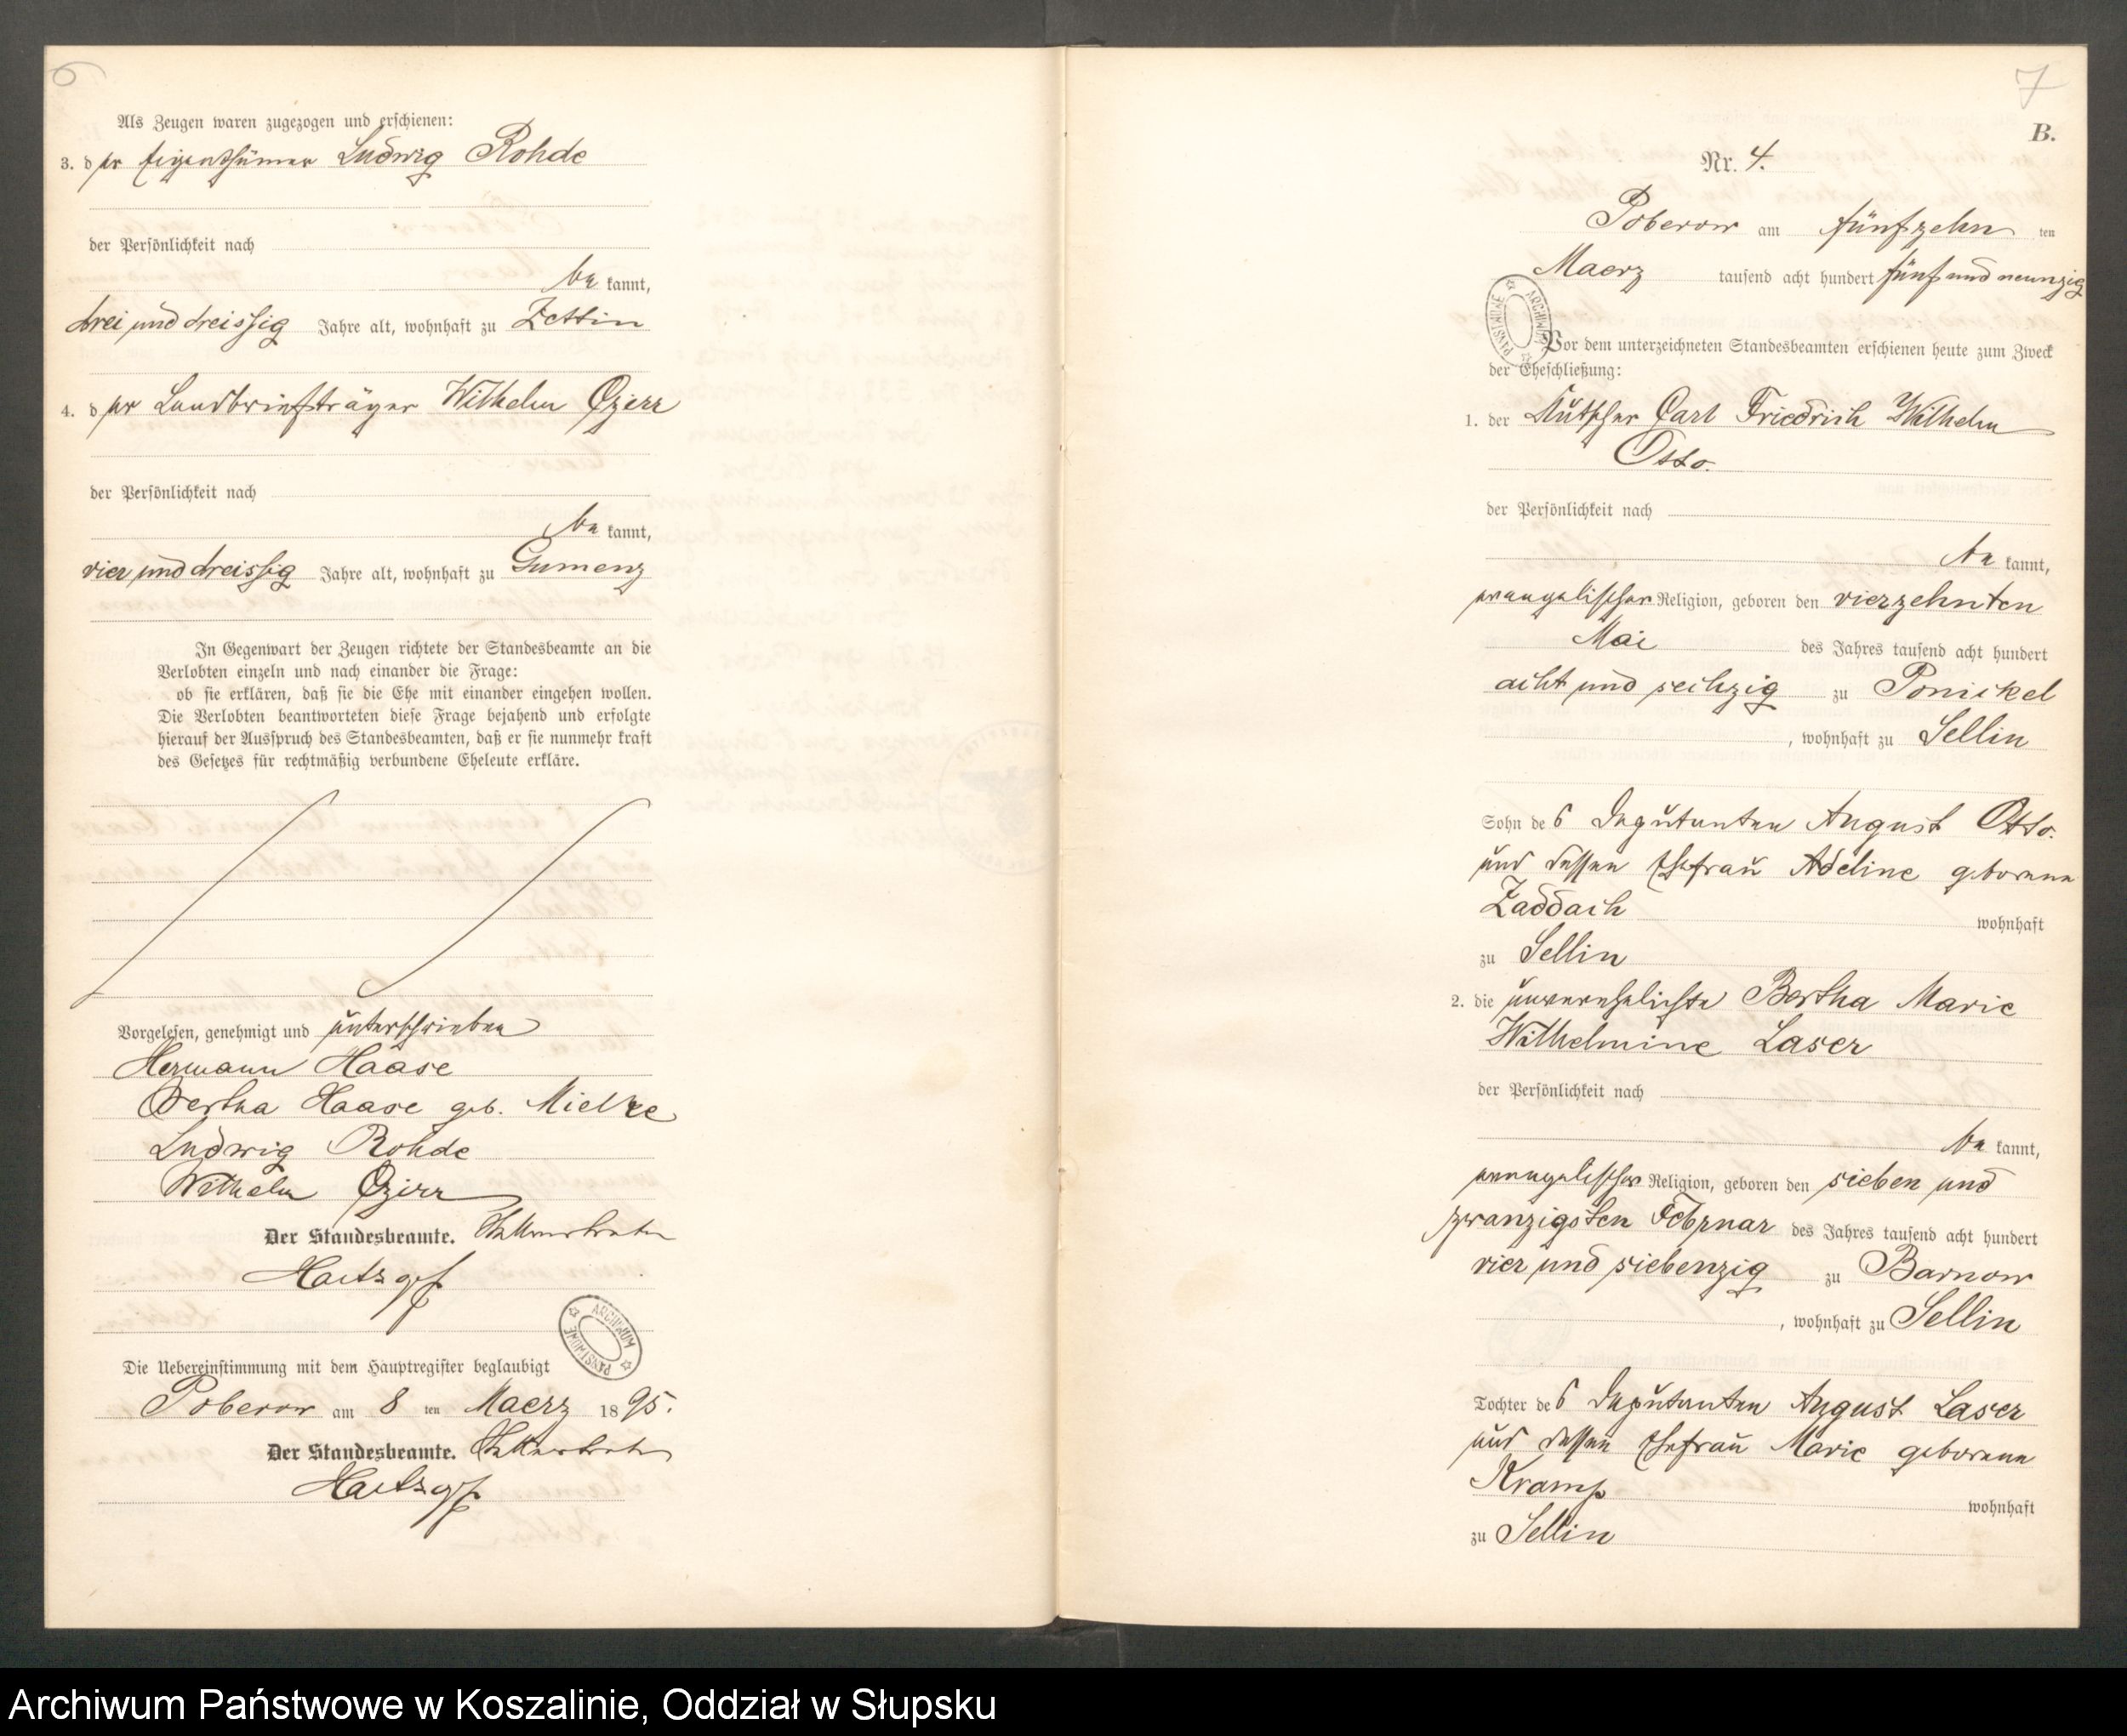 6
Als Zeugen waren zugezogen und erschienen:
3. der Eigenthümer Ludwig Rohde
der Persönlichkeit nach
be kannt,
drei und dreissig Jahre alt, wohnhaft zu Zettin
4. der Landbriefträger Wilhelm
der Persönlichkeit nach
be kannt,
vier und dreissig Jahre alt, wohnhaft zu Gumenz
In Gegenwart der Zeugen richtete der Standesbeamte an die
Verlobten einzeln und nach einander die Frage:
ob sie erklären, daß sie die Ehe mit einander eingehen wollen.
Die Verlobten beantworteten diese Frage bejahend und erfolgte
hierauf der Ausspruch des Standesbeamten, daß er sie nunmehr kraft
des Gesetzes für rechtmäßig verbundene Eheleute erkläre.
Vorgelesen, genehmigt und unterschrieben
Hermann Haase
Bertha Haase geb. Mielke
Ludwig Rohde
Wilhelm
Der Standesbeamte.
ARCHIWUM PAŃSTWOWE
Die Uebereinstimmung mit dem Hauptregister beglaubigt
Poberow am 8 ten Maerz 18 95.
Der Standesbeamte.
7
B.
Nr. 4.
Poberow am fünfzehn ten
Maerz tausend acht hundert fünf und neunzig
ARCHIWUM PAŃSTWOWE
Vor dem unterzeichneten Standesbeamten erschienen heute zum Zweck
der Eheschließung:
1. der Kutscher Carl Friedrich Wilhelm
Otto.
der Persönlichkeit nach
be kannt,
evangelischer Religion, geboren den vierzehnten
Mai des Jahres tausend acht hundert
acht und sechzig zu Ponickel
, wohnhaft zu Sellin
Sohn des Deputanten August Otto.
und dessen Ehefrau Adeline geborene
Zaddach wohnhaft
zu Sellin
2. die unverehelichte Bertha Marie
Wilhelmine Laser
der Persönlichkeit nach
be kannt,
evangelischer Religion, geboren den sieben und
zwanzigsten Februar des Jahres tausend acht hundert
vier und siebenzig zu Barnow
, wohnhaft zu Sellin
Tochter des Deputanten August Laser
und dessen Ehefrau Marie geborene
Kramp wohnhaft
zu Sellin
Archiwum Państwowe w Koszalinie, Oddział w Słupsku